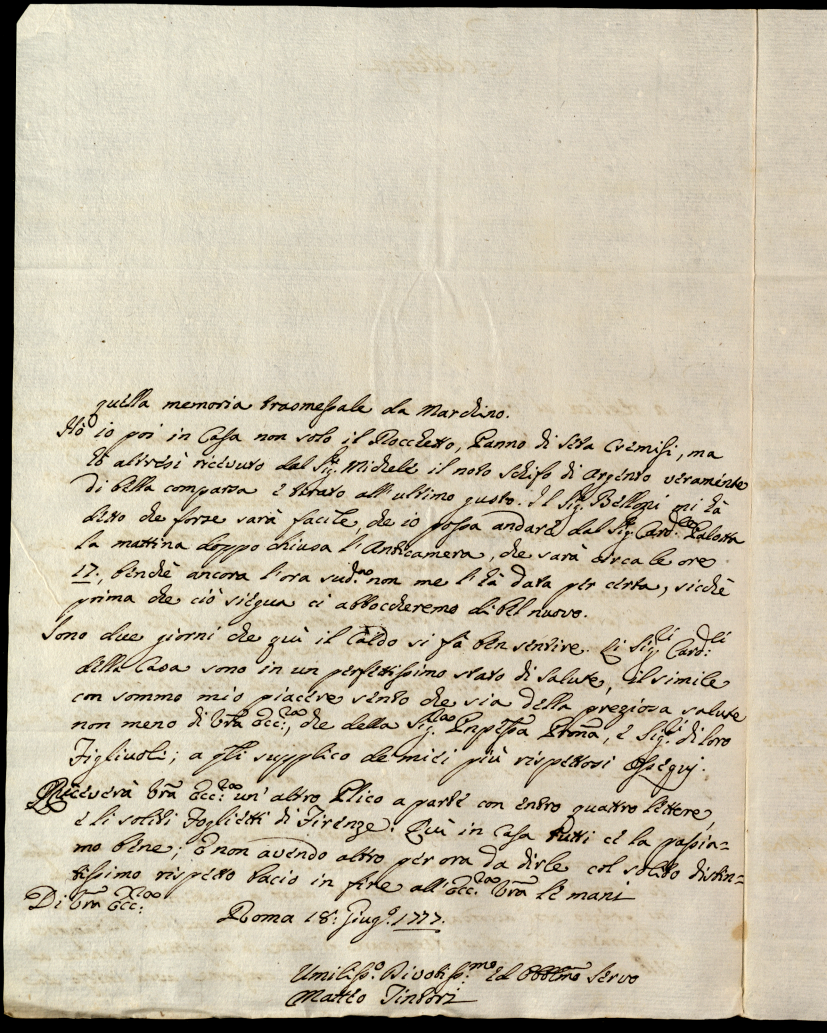 quella memoria trasmessale da Marchino.
Hò io poi in Casa non solo il Rocchetto, Panno di Seta Cremisi, ma
hò altresì ricevuto dal Sig.r Michele il noto Schifo di Argento veramente
di bella comparsa e tirato all'ultimo gusto. Il Sig.r Belloni mi hà
detto che forse sarà facile, che io possa andare dal Sig.r Card.le Palotta
la mattina doppo chiusa l'Anticamera, che sarà circa le ore
17., benchè ancora l'ora sud.a non me l'hà data per certa, sicchè
prima che ciò siegua ci abboccheremo di bel nuovo.
Sono due giorni che quì il Caldo si fà ben sentire. Li Sig.ri Card.li
della Casa sono in un perfettissimo stato di Salute, il simile
con sommo mio piacere sento che sia della preziosa salute
non meno di Vr̃a Ecc.za, che della Sig.ra Pnp̃essa Pr̃ona, e Sig.ri di loro
Figliuoli; a gli supplico de miei più rispettosi Ossequj.
Riceverà Vr̃a Ecc.za un'altro Plico a parte con entro quattro lettere,
e li soliti Foglietti di Firenze. Quì in Casa tutti ce la passia=
mo bene; e non avendo altro per ora da dirle col solito distin=
tissimo rispetto bacio in fine all'Ecc.za Vr̃a le mani
Di Vr̃a Ecc.za
Roma 18. Giug.o 1777.
Umiliss.o Divotiss.mo ed Obblm̃o Servo
Matteo Tintori